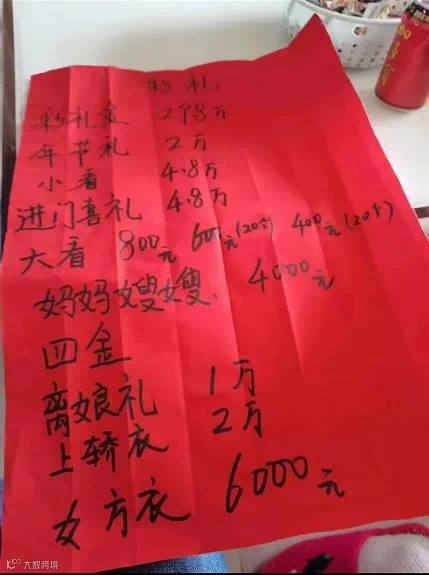 彩礼
彩礼金 29.8万
年节礼 2万
小看 4.8万
进门喜礼 4.8万
大看 800元 600元(20个) 400元(20个)
妈妈嫂嫂. 4000元
四金
离娘礼 1万
上轿衣 2万
女方衣 6000元
大数跨境